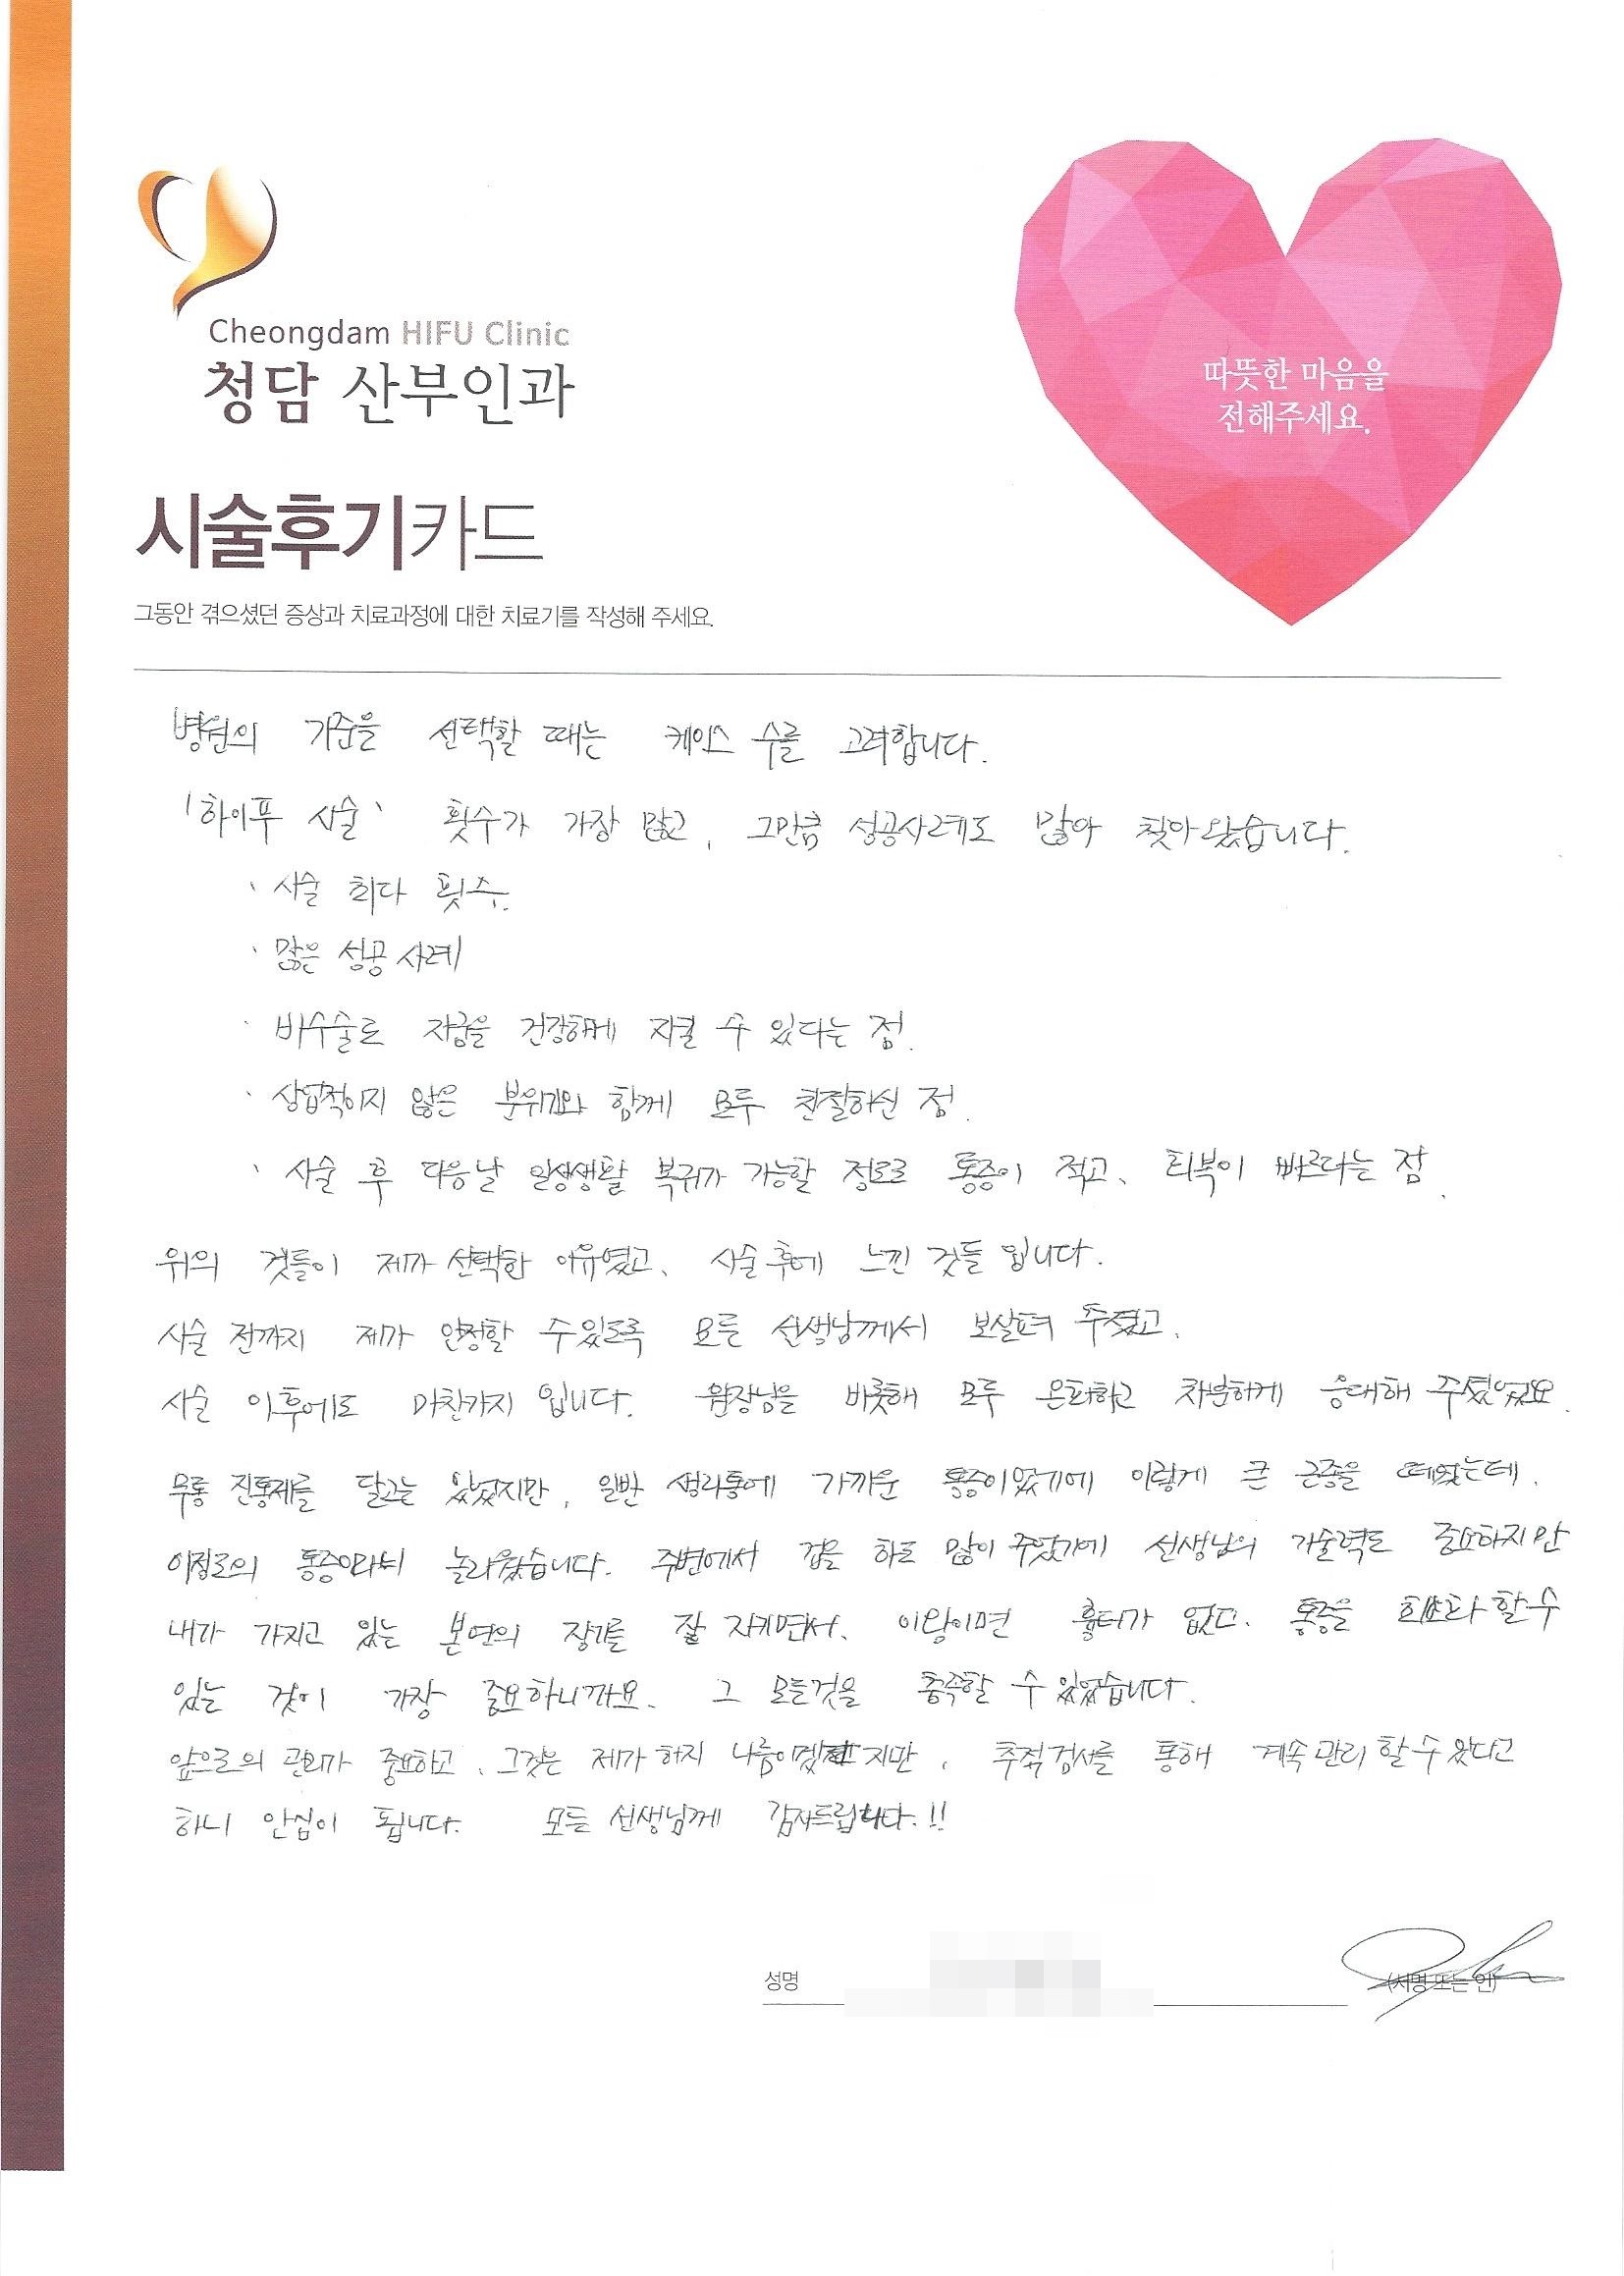 Cheongdam HIFU Clinic
청담 산부인과
따뜻한 마음을
전해주세요.
시술후기카드
그동안 겪으셨던 증상과 치료과정에 대한 치료기를 작성해 주세요.
병원의 기준을 선택할 때는 케이스 수를 고려합니다.
'하이푸 시술' 횟수가 가장 많고, 그만큼 성공사례도 많아 찾아왔습니다.
· 시술 최다 횟수.
· 많은 성공 사례
· 비수술로 자궁을 건강하게 지킬 수 있다는 점.
· 상업적이지 않은 분위기와 함께 모두 친절하신 점.
· 시술 후 다음날 일상생활 복귀가 가능할 정도로 통증이 적고, 회복이 빠르다는 점.
위의 것들이 제가 선택한 이유였고, 시술 후에 느낀 것들 입니다.
시술 전까지 제가 안정할 수 있도록 모든 선생님께서 보살펴 주셨고,
시술 이후에도 마찬가지 입니다. 원장님을 비롯해 모두 온화하고 차분하게 응대해 주셨었어요.
무통 진통제를 달고는 있었지만, 일반 생리통에 가까운 통증이었기에 이렇게 큰 근종을 떼었는데,
이정도의 통증이라니 놀라웠습니다. 주변에서 겁을 하도 많이 주었기에 선생님의 기술력도 중요하지만
내가 가지고 있는 본연의 장기를 잘 지키면서, 이왕이면 흉터가 없고, 통증을 최소화 할 수
있는 것이 가장 중요하니까요. 그 모든것을 충족할 수 있었습니다.
앞으로의 관리가 중요하고, 그것은 제가 하기 나름이겠지만, 추적검사를 통해 계속 관리 할 수 있다고
하니 안심이 됩니다. 모든 선생님께 감사드립니다.!!
성명
(서명 또는 인)